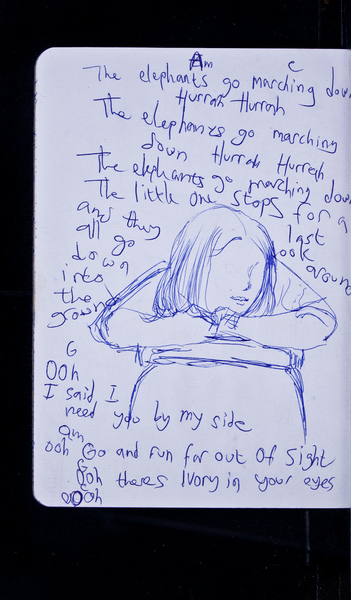 Am C
The elephants go marching down
Hurrah Hurrah
The elephants go marching
down Hurrah Hurrah
The elephants go marching down
The little one stops for a
and they last
all go look around
down
into
the
ground
G
Ooh
I said I
need you by my side
am
ooh Go and run far out of sight
G
Ooh theres Ivory in your eyes
ooooh